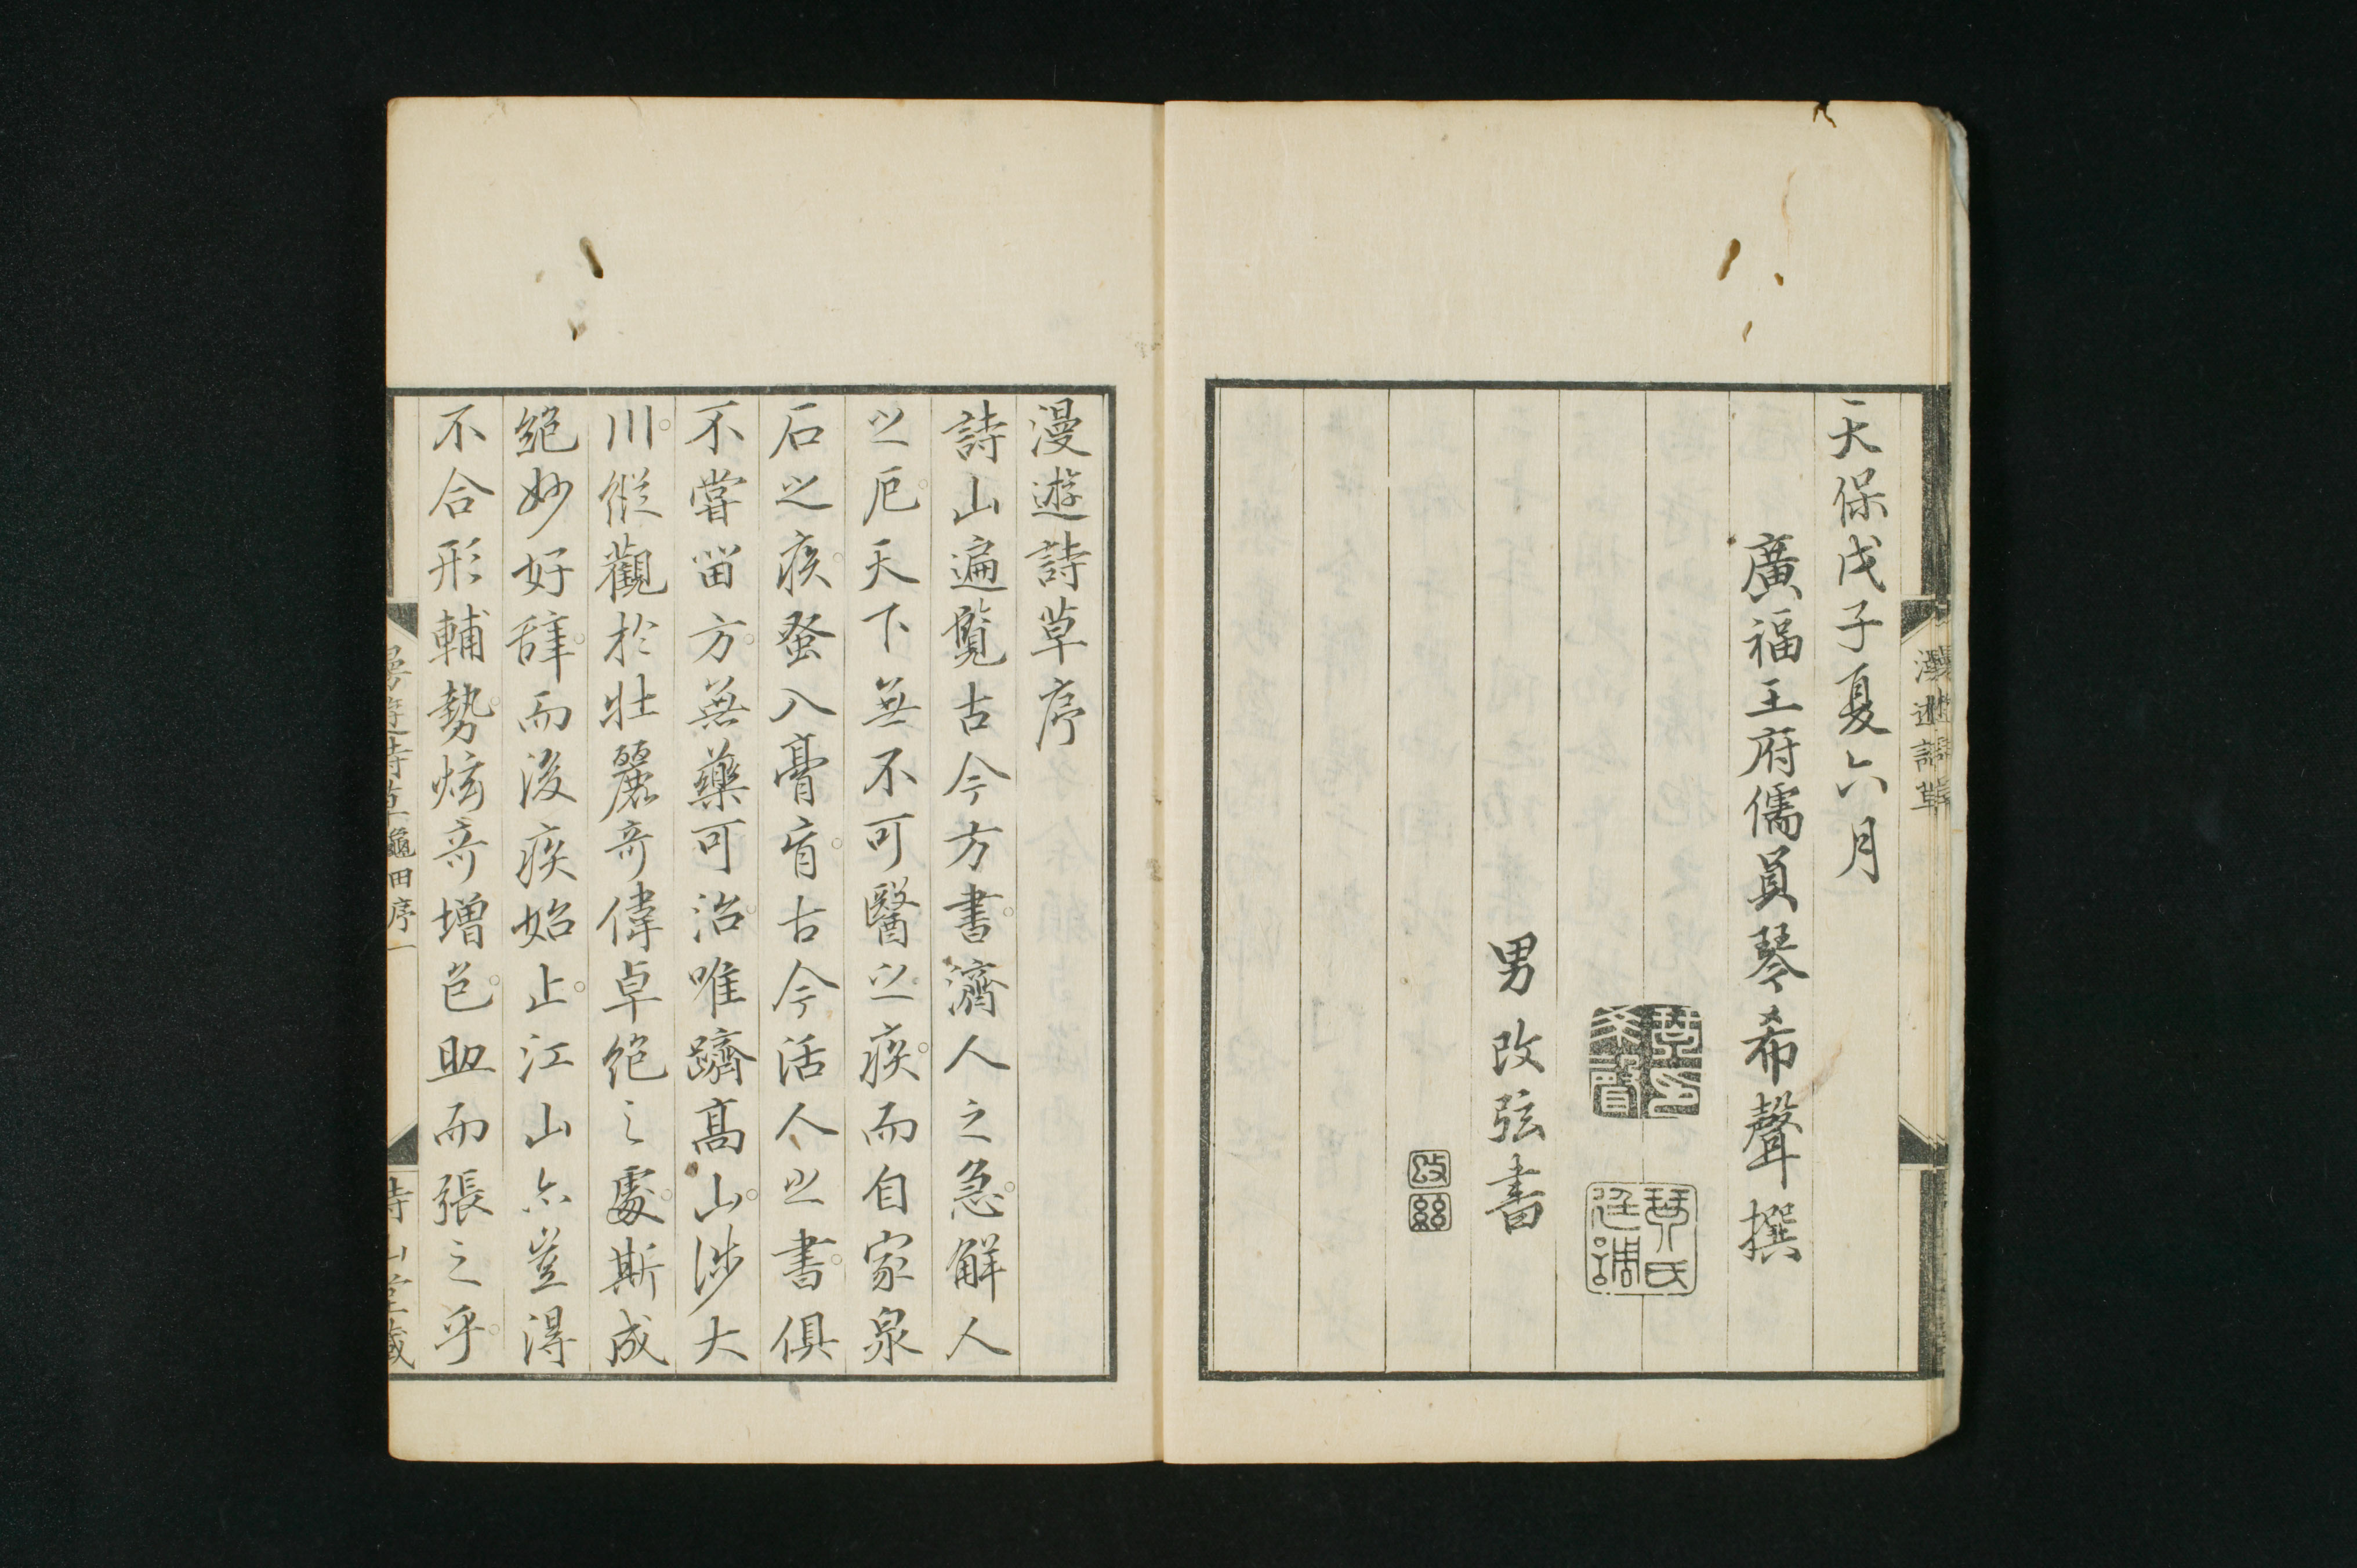 天保戊子夏六月
廣福王府儒員琴希聲撰
男改弦書
漫遊詩草序
詩山遍覽古今方書濟人之急解人
之厄天下無不可醫之疾而自家泉
石之疾登入膏肓古今活人之書俱
不嘗畄方無藥可治唯躋高山涉大
川縱觀於壯麗奇偉卓絶之處斯成
絶妙好辞而後疾始止江山亦豈得
不合形輔勢炫奇增色助而張之乎
漫遊詩草 龜田序 一
詩山堂藏